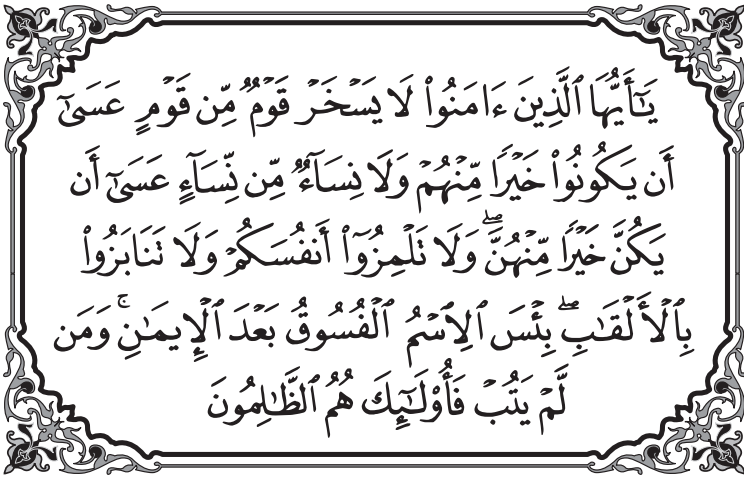 يَـٰٓأَيُّهَا ٱلَّذِينَ ءَامَنُوا۟ لَا يَسْخَرْ قَوْمٌ مِّن قَوْمٍ عَسَىٰٓ
أَن يَكُونُوا۟ خَيْرًا مِّنْهُمْ وَلَا نِسَآءٌ مِّن نِّسَآءٍ عَسَىٰٓ أَن
يَكُنَّ خَيْرًا مِّنْهُنَّ ۖ وَلَا تَلْمِزُوٓا۟ أَنفُسَكُمْ وَلَا تَنَابَزُوا۟
بِٱلْأَلْقَـٰبِ ۖ بِئْسَ ٱلِٱسْمُ ٱلْفُسُوقُ بَعْدَ ٱلْإِيمَـٰنِ ۚ وَمَن
لَّمْ يَتُبْ فَأُو۟لَـٰٓئِكَ هُمُ ٱلظَّـٰلِمُونَ